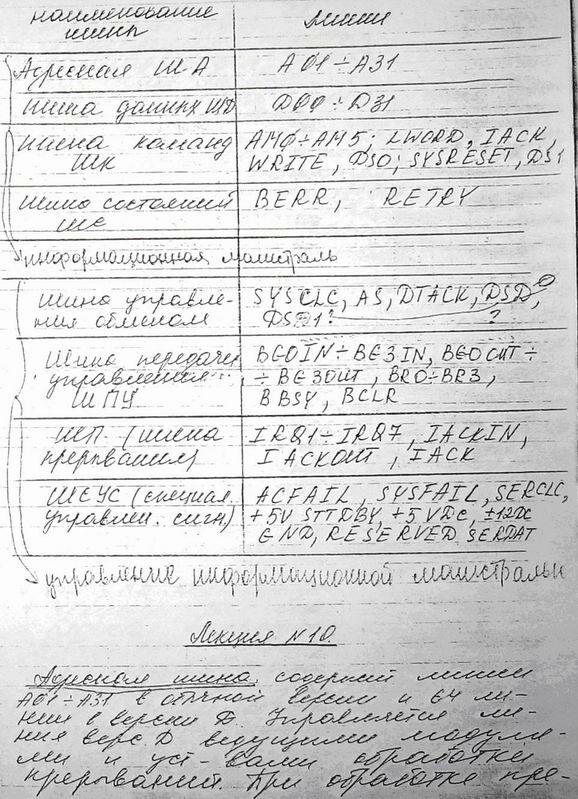 наименование шины | Линии
Адресная ША | A01÷A31
шина данных ШД | D00÷D31
шина команд ШК | AM0÷AM5; LWORD, IACK, WRITE, DS0; SYSRESET, DS1
шина состояний ШС | BERR, RETRY
информационная магистраль
шина управле- | SYSCLC, AS, DTACK, DSD0,
ния обменом | DSD1? ?
шина передачи | BG0IN÷BG3IN, BG0OUT÷
управления | ÷BG3OUT, BR0÷BR3,
ШПУ | BBSY, BCLR
ШП (шина | IRQ1÷IRQ7, IACKIN,
прерывания) | IACKOUT, IACK
ШСУС (специал. | ACFAIL, SYSFAIL, SERCLC,
управлен. сигн.) | +5V STTDBY, +5VDC, ±12DC
GND, RESERVED SERDAT
управление информационной магистралью
Лекция N10.
Адресная шина содержит линии
A01÷A31 в обычной версии и 64 ли-
нии в версии D. Управляется ли-
ния верс. D ведущими модуля-
ми и уст-вами обработки
прерываний. При обработке пре-